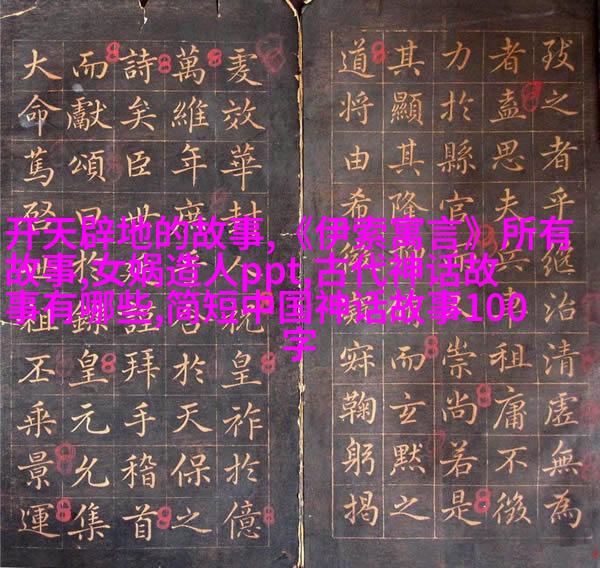 开天辟地的故事,《伊索寓言》所有
故事,女娲造人ppt,古代神话故
事有哪些,简短中国神话故事100
字
之者乎繼治清虛無為
者盍思夫祖庸不
力於縣官崇尚若是
其顯其隆而玄默之
道將由希鞠躬揭
效華封祝皇祚於億
萬維年於天保之
詩矣臣世拜手稽首
而獻頌曰於鑠皇元允集
大命篤啓祖丕乘景運